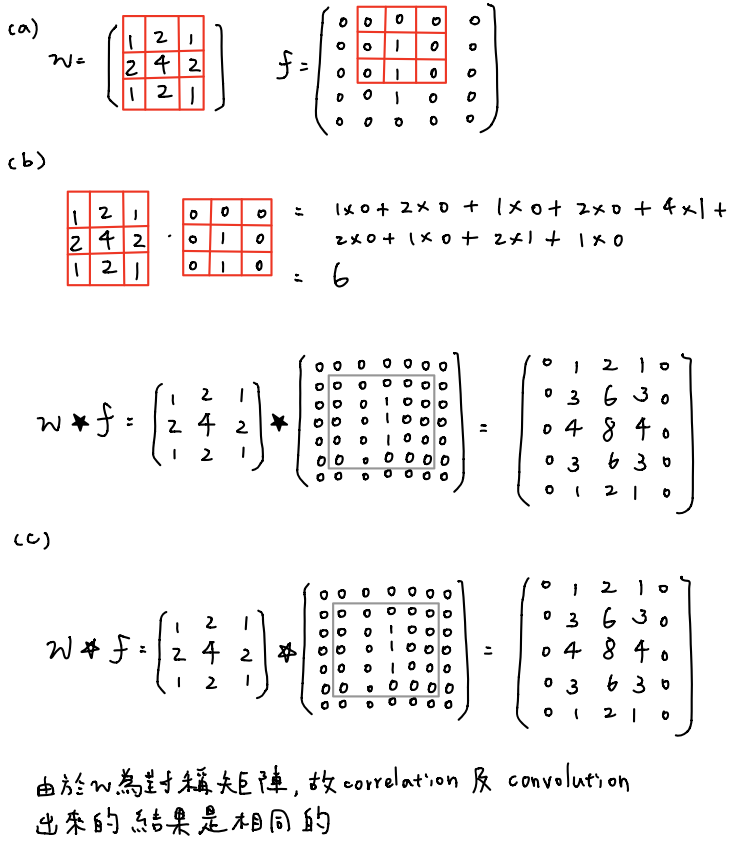 (a)
w=
1 2 1
2 4 2
1 2 1
f=
0 0 0 0 0
0 0 1 0 0
0 0 1 0 0
0 0 1 0 0
0 0 0 0 0
(b)
1 2 1
2 4 2
1 2 1
·
0 0 0
0 1 0
0 1 0
= 1×0+ 2×0 + 1×0+ 2×0 + 4×1+
2×0+ 1×0 + 2×1 + 1×0
= 6
w ★ f =
1 2 1
2 4 2
1 2 1
★
0 0 0 0 0 0 0
0 0 0 0 0 0 0
0 0 0 1 0 0 0
0 0 0 1 0 0 0
0 0 0 1 0 0 0
0 0 0 0 0 0 0
0 0 0 0 0 0 0
=
0 1 2 1 0
0 3 6 3 0
0 4 8 4 0
0 3 6 3 0
0 1 2 1 0
(c)
w ☆ f =
1 2 1
2 4 2
1 2 1
☆
0 0 0 0 0 0 0
0 0 0 0 0 0 0
0 0 0 1 0 0 0
0 0 0 1 0 0 0
0 0 0 1 0 0 0
0 0 0 0 0 0 0
0 0 0 0 0 0 0
=
0 1 2 1 0
0 3 6 3 0
0 4 8 4 0
0 3 6 3 0
0 1 2 1 0
由於w為對稱矩陣, 故correlation 及 convolution
出來的 結果是相同的